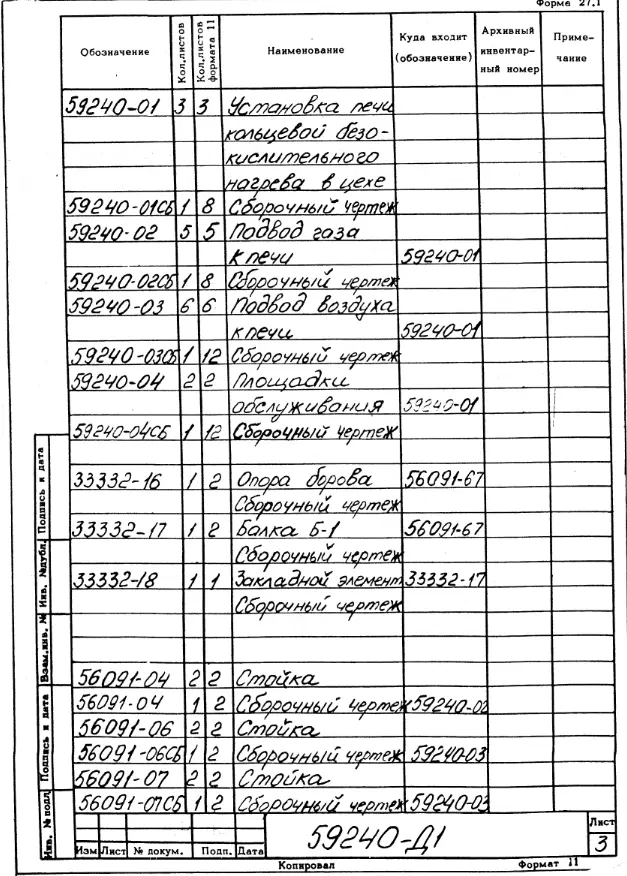 Форма 27.1
Обозначение Кол.листов Кол.листов формата 11 Наименование Куда входит (обозначение) Архивный инвентарный номер Примечание
59240-01 3 3 Установка печи
кольцевой безо-
кислительного
нагрева в цехе
59240-01СБ 1 8 Сборочный чертеж
59240-02 5 5 Подвод газа
к печи 59240-01
59240-02СБ 1 8 Сборочный чертеж
59240-03 6 6 Подвод воздуха
к печи 59240-01
59240-03СБ 1 12 Сборочный чертеж
59240-04 2 2 Площадки
обслуживания 59240-01
59240-04СБ 1 12 Сборочный чертеж
33332-16 1 2 Опора борова 56091-67
Сборочный чертеж
33332-17 1 2 Балка Б-1 56091-67
Сборочный чертеж
33332-18 1 1 Закладной элемент 33332-17
Сборочный чертеж
56091-04 2 2 Стойка
56091-04 1 2 Сборочный чертеж 59240-02
56091-06 2 2 Стойка
56091-06СБ 1 2 Сборочный чертеж 59240-03
56091-07 2 2 Стойка
56091-07СБ 1 2 Сборочный чертеж 59240-03
Подпись и дата
Инв. №дубл.
Взам.инв. №
Подпись и дата
Инв. №подл.
59240-Д1
Лист
3
Изм Лист № докум. Подп. Дата
Копировал Формат 11